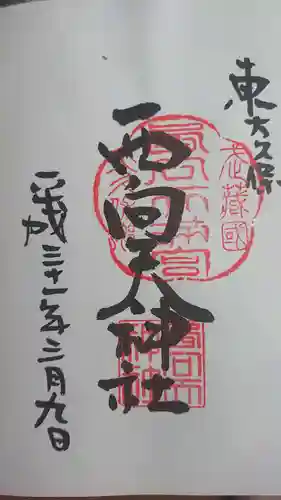 東大久保
武蔵國
西向天神社
平成三十一年三月九日